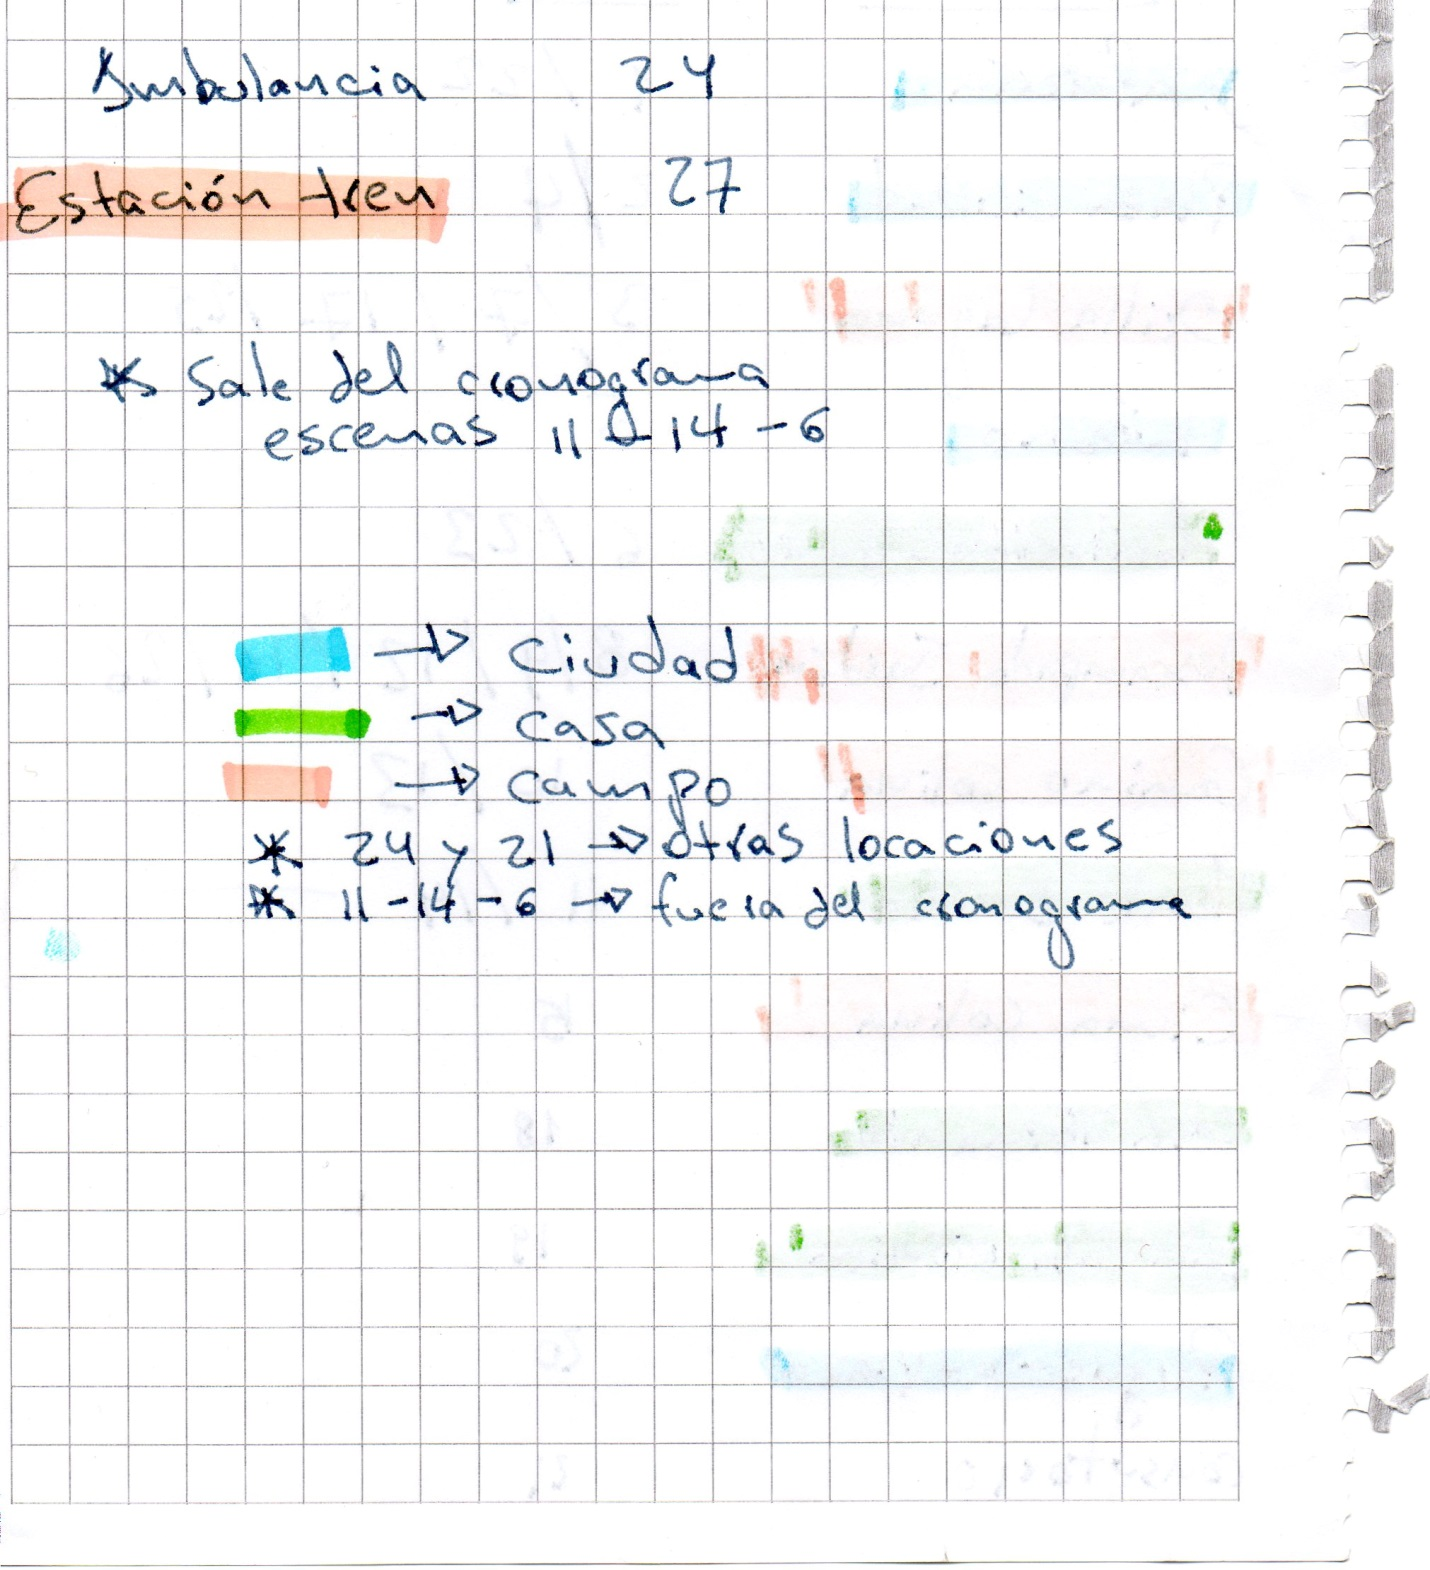 Ambulancia 24
Estación tren 27
* Sale del cronograma
escenas 11 - 14 - 6
→ Ciudad
→ casa
→ campo
* 24 y 21 → otras locaciones
* 11 - 14 - 6 → fuera del cronograma